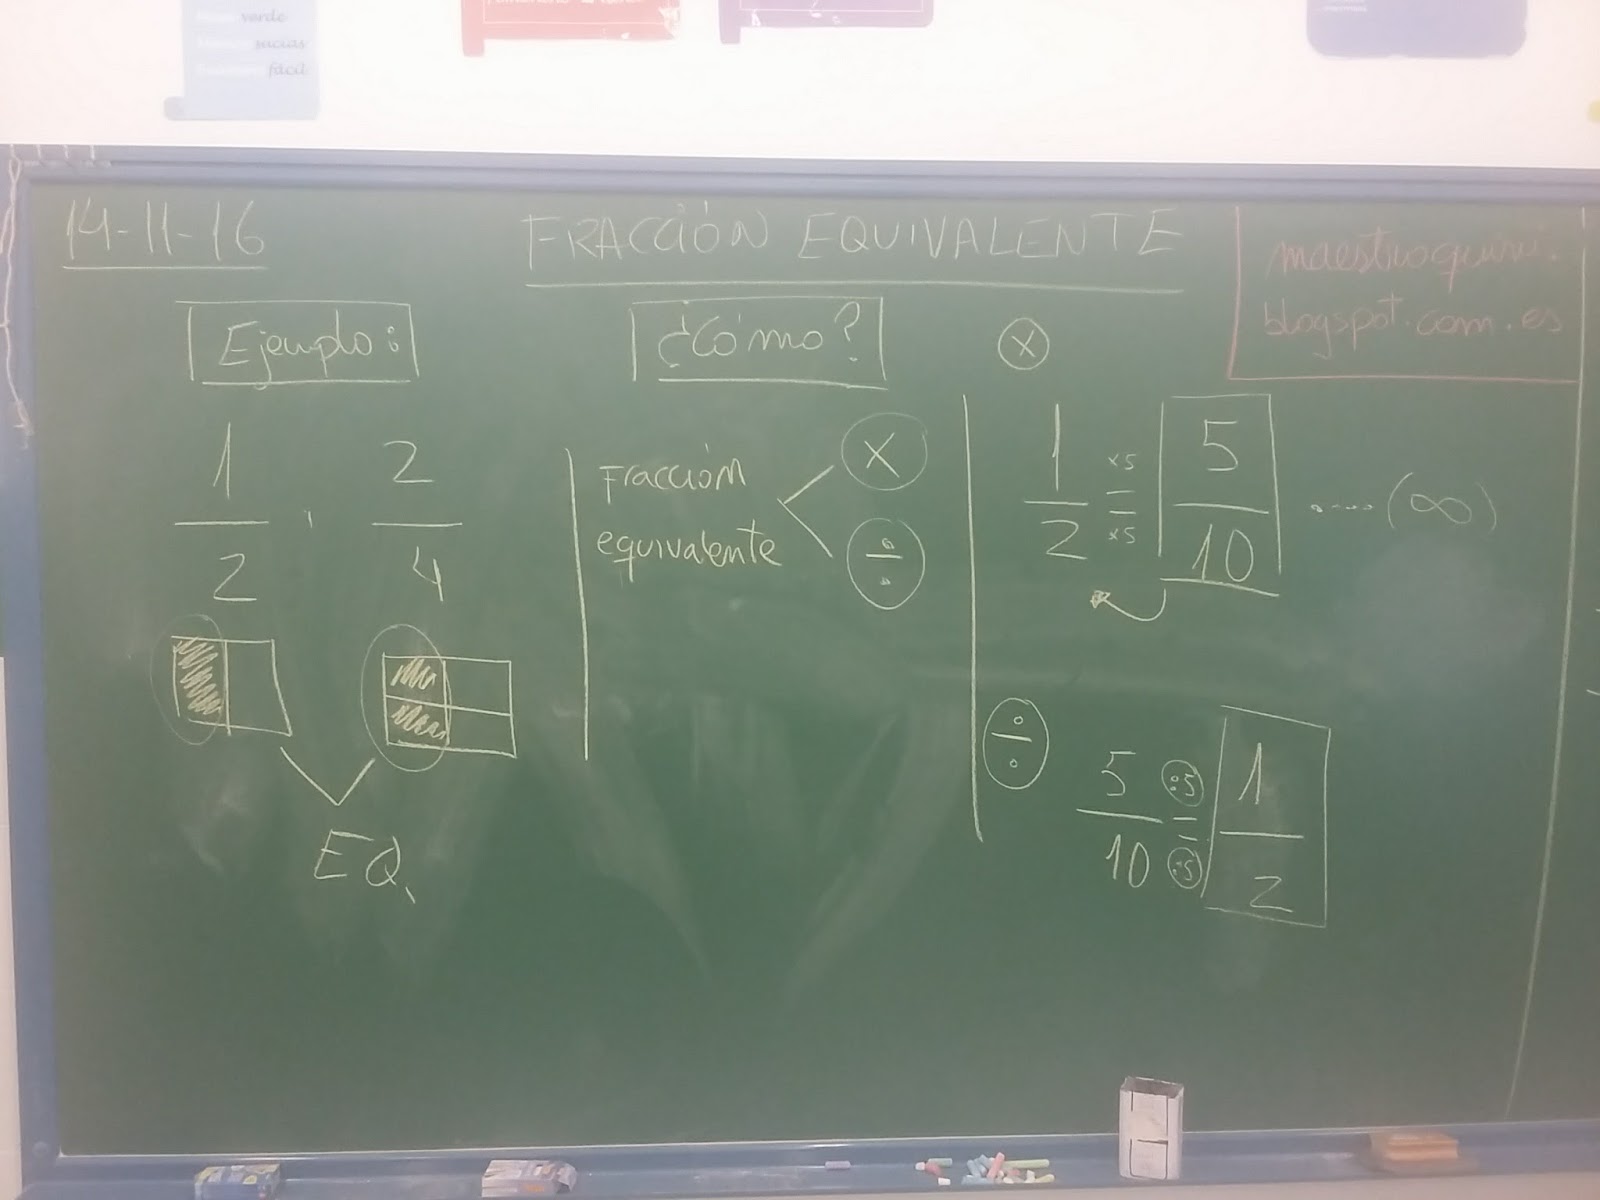 verde
sucias
fácil
14-11-16
FRACCIÓN EQUIVALENTE
maestroquini.
blogspot.com.es
Ejemplo:
¿Cómo?
×
1/2, 2/4
EQ.
Fracción
equivalente
×
÷
1/2 ×5 = ×5 5/10 ....(∞)
÷
5/10 :5 = :5 1/2